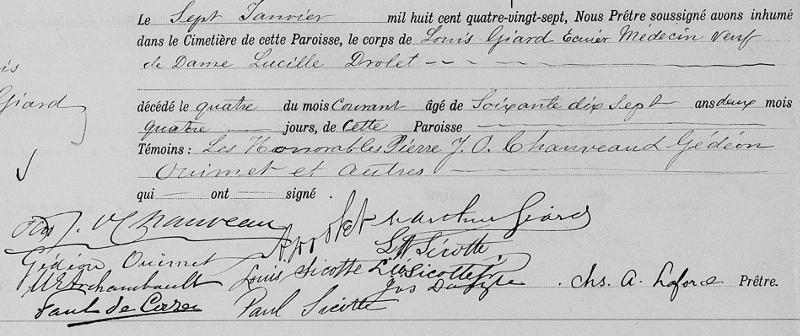 Giard
Le Sept Janvier mil huit cent quatre-vingt-sept, Nous Prêtre soussigné avons inhumé
dans le Cimetière de cette Paroisse, le corps de Louis Giard Ecuier Médecin veuf
de Dame Lucille Drolet
décédé le quatre du mois Courant âgé de Soixante dix Sept ans deux mois
quatre jours, de Cette Paroisse
Témoins : Les Honorables Pierre J. O. Chauveaud Gédéon
Ouimet et autres
qui — ont — signé .
J. O Chauveau Arthur Giard
Gédéon Ouimet Sicotte
Archambault Louis Sicotte Sicotte
Chs. A. Laforce Prêtre.
Paul de Cazes Paul Sicotte